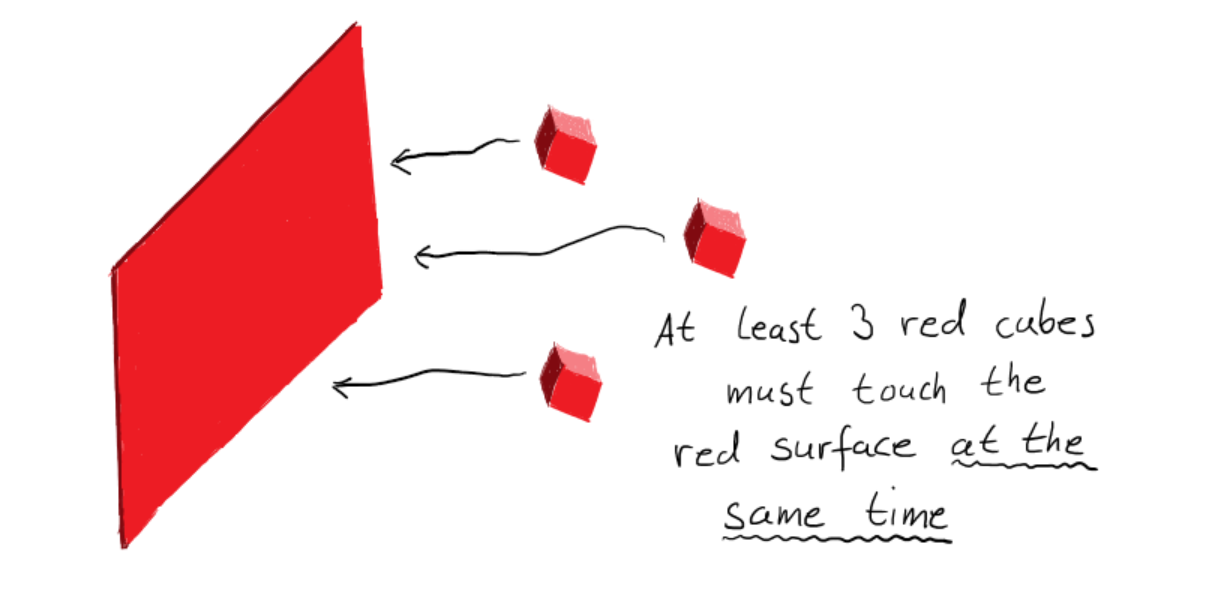 At least 3 red cubes
must touch the
red surface at the
same time